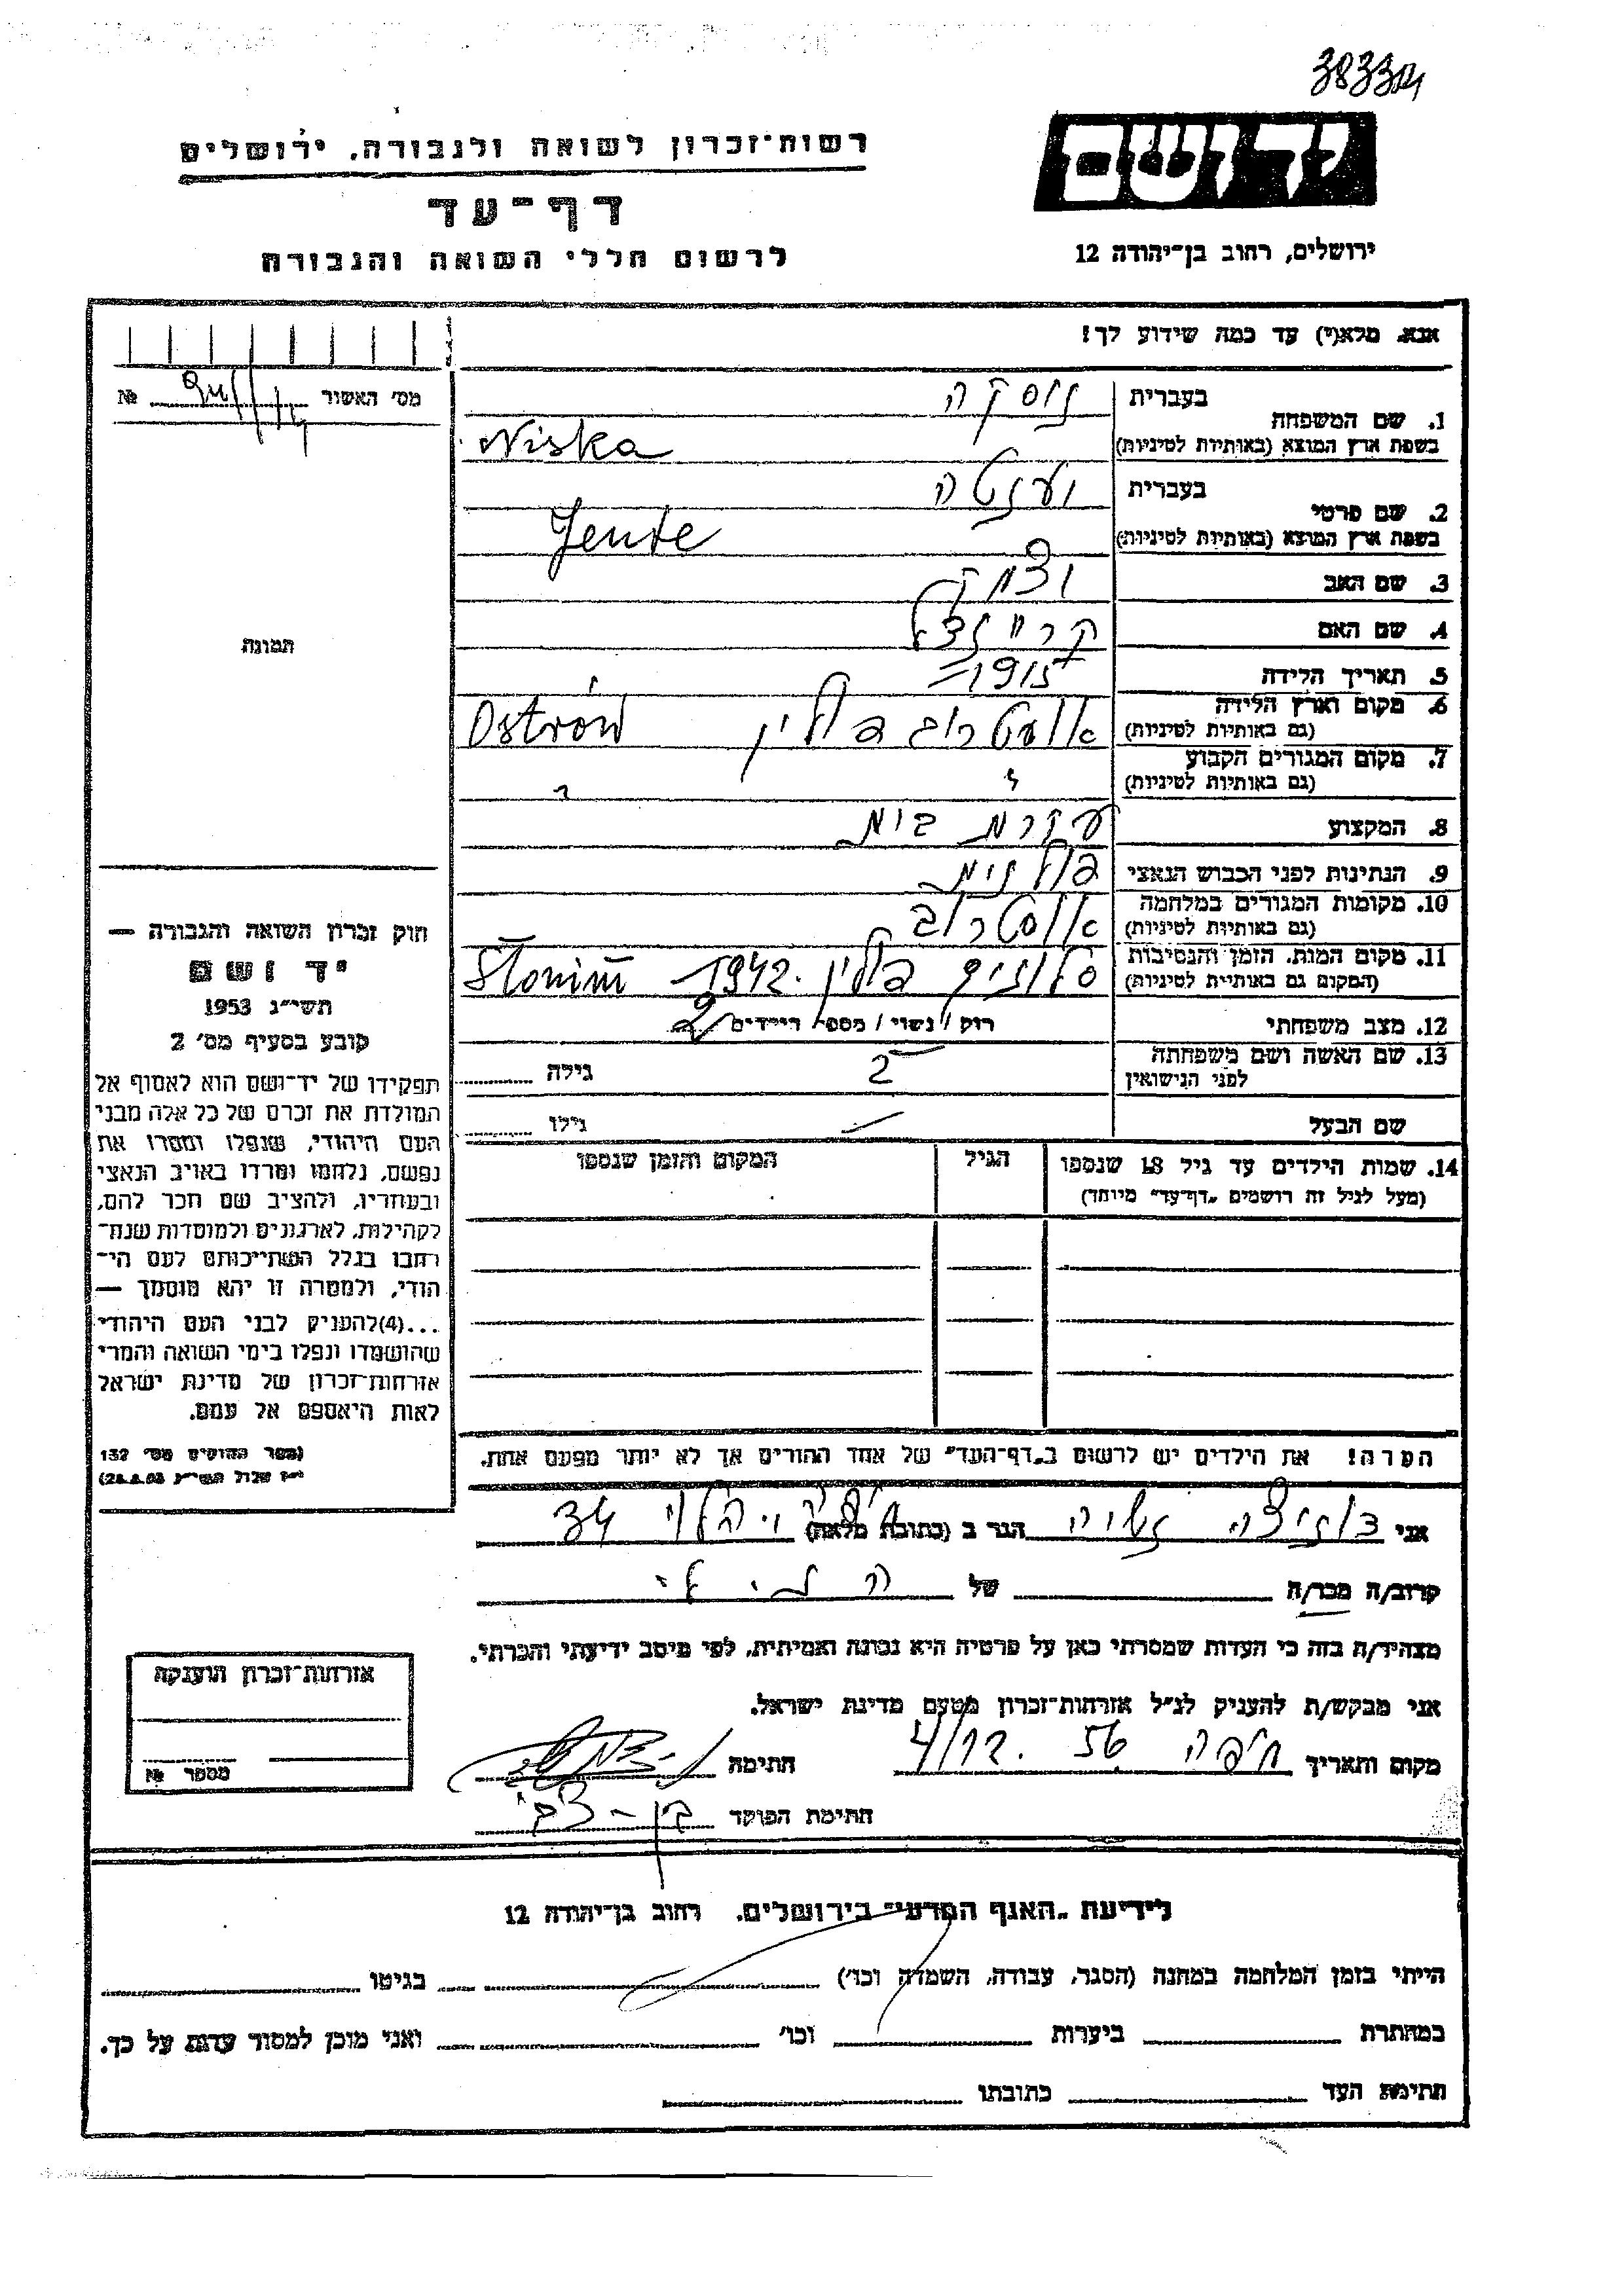 38334
רשות־זכרון לשואה ולגבורה, ירושלים
יד ושם
דף־עד
לרשום חללי השואה והגבורה
ירושלים, רחוב בן־יהודה 12
אנא, מלא(י) עד כמה שידוע לך!
מס' האשור № 94/
1. שם המשפחה בעברית ניסקה
בשפת ארץ המוצא (באותיות לטיניות) Niska
2. שם פרטי בעברית יענטה
בשפת ארץ המוצא (באותיות לטיניות) Jente
3. שם האב יצחק
4. שם האם קריינצל
5. תאריך הלידה 1915
6. מקום וארץ הלידה אוסטרוב פולין Ostrów
(גם באותיות לטיניות)
7. מקום המגורים הקבוע
(גם באותיות לטיניות)
8. המקצוע עקרת בית
9. הנתינות לפני הכבוש הנאצי פולנית
10. מקומות המגורים במלחמה אוסטרוב
(גם באותיות לטיניות)
11. מקום המות, הזמן והנסיבות סלונים פולין 1942. Słonim
(המקום גם באותיות לטיניות)
12. מצב משפחתי רוק / נשוי / מספר הילדים
13. שם האשה ושם משפחתה גילה
לפני הנישואין
שם הבעל גילו
14. שמות הילדים עד גיל 18 שנספו הגיל המקום והזמן שנספו
(מעל לגיל זה רושמים „דף־עד" מיוחד)
תמונה
חוק זכרון השואה והגבורה —
יד ושם
תשי"ג 1953
קובע בסעיף מס' 2
תפקידו של יד־ושם הוא לאסוף אל
המולדת את זכרם של כל אלה מבני
העם היהודי, שנפלו ומסרו את
נפשם, נלחמו ומרדו באויב הנאצי
ובעוזריו, ולהציב שם וזכר להם,
לקהילות, לארגונים ולמוסדות שנח־
רבו בגלל השתייכותם לעם הי־
הודי, ולמטרה זו יהא מוסמך —
...(4) להעניק לבני העם היהודי
שהושמדו ונפלו בימי השואה והמרי
אזרחות־זכרון של מדינת ישראל
לאות היאספם אל עמם.
(ספר החוקים מס' 132
הערה! את הילדים יש לרשום ב„דף־העד" של אחד ההורים אך לא יותר מפעם אחת.
אני הגר ב (כתובת מלאה) 34
קרוב/ה מכר/ה של
מצהיר/ה בזה כי העדות שמסרתי כאן על פרטיה היא נכונה ואמיתית, לפי מיטב ידיעתי והכרתי.
אני מבקש/ת להעניק לנ"ל אזרחות־זכרון מטעם מדינת ישראל.
מקום ותאריך חיפה 4/12. 56 חתימה
חתימת הפוקד בן-צבי
אזרחות־זכרון הוענקה
מספר №
לידיעת „האגף המדעי" בירושלים, רחוב בן־יהודה 12
הייתי בזמן המלחמה במחנה (הסגר, עבודה, השמדה וכו') בגיטו
במחתרת ביערות וכו' ואני מוכן למסור עדות על כך.
חתימת העד כתובתו